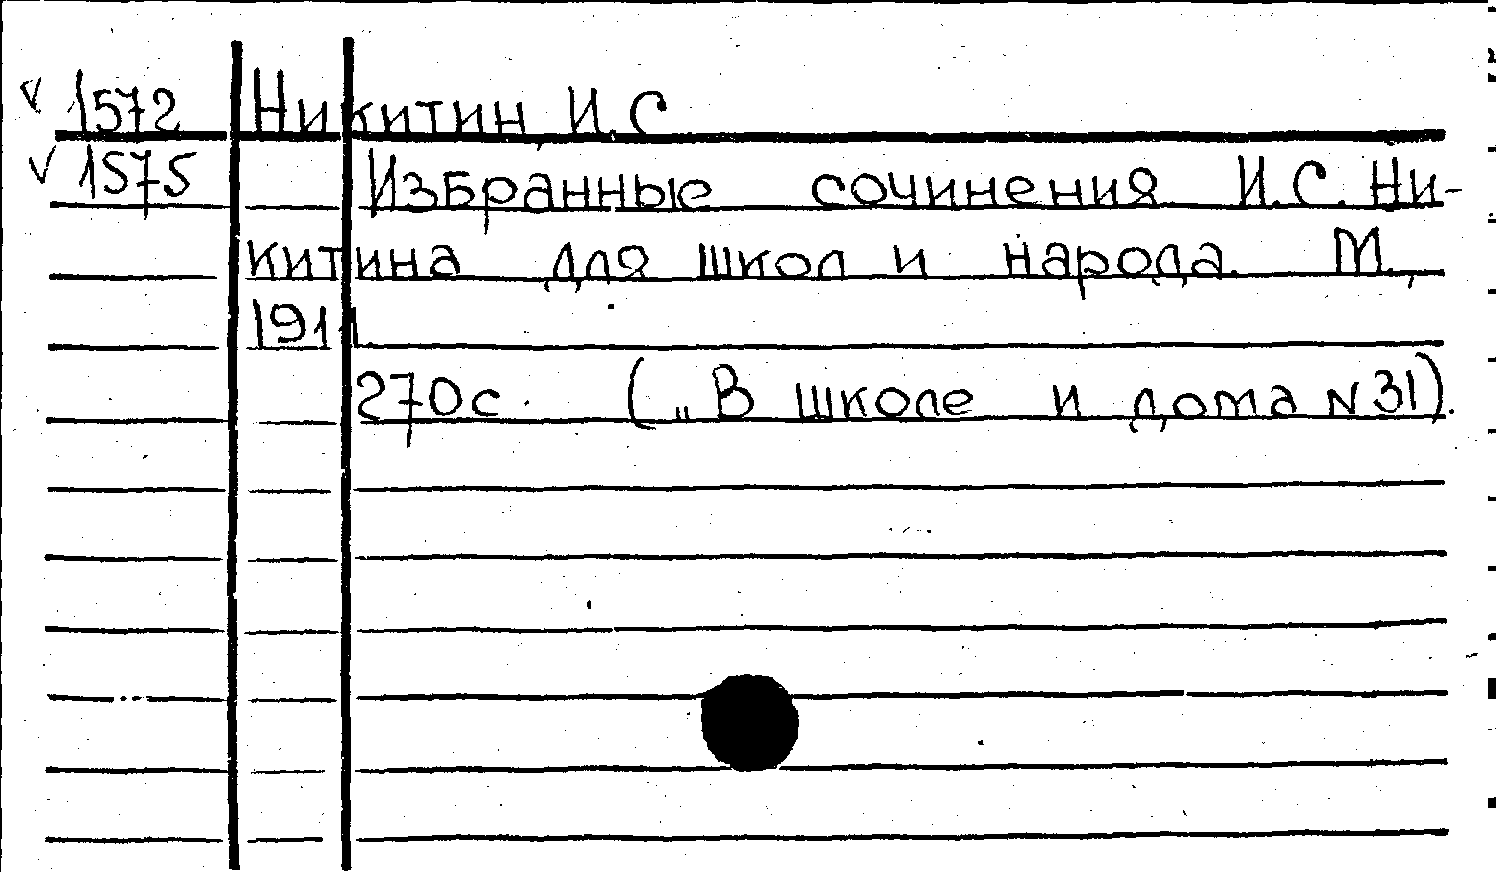 √ 1572 Никитин, И.С
√ 1575 Избранные сочинения И.С. Ни-
китина для школ и народа. М.,
1911.
270с. („В школе и дома N 31).